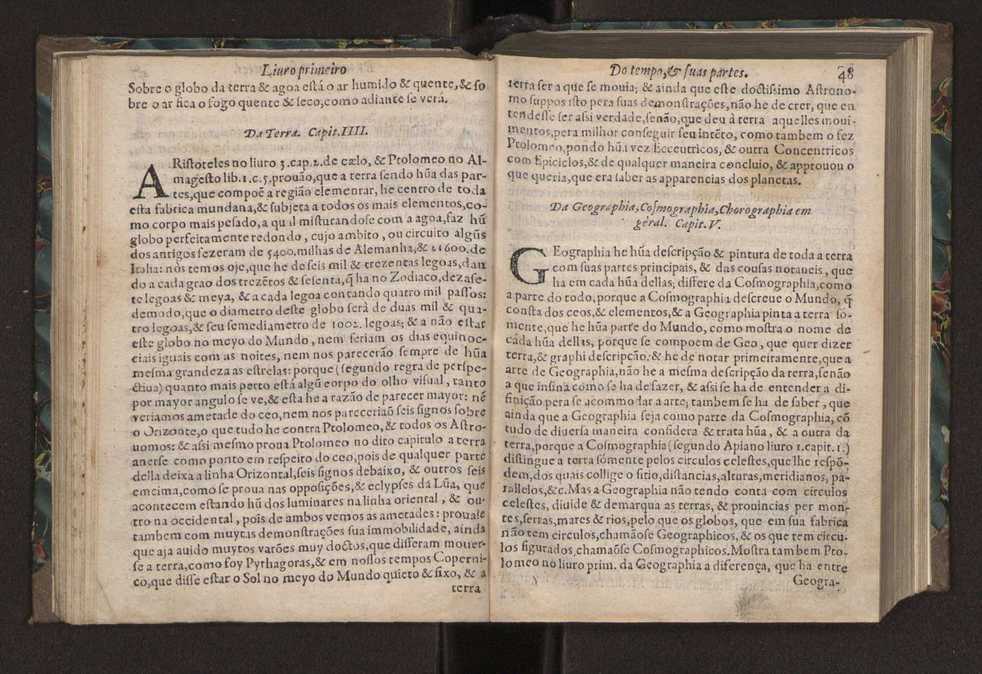 Liuro primeiro
Sobre o globo da terra & agoa está o ar humido & quente, & so
bre o ar fica o fogo quente & seco, como adiante se verá.
Da Terra. Capit. IIII.
ARistoteles no liuro 3. cap. 2. de cælo, & Ptolomeo no Al-
magesto lib. 1. c. 5, prouão, que a terra sendo hũa das par-
tes, que compoẽ a região elementrar, he centro de toda
esta fabrica mundana, & subjeta a todos os mais elementos, co-
mo corpo mais pesado, a qu il misturandose com a agoa, faz hũ
globo perfeitamente redondo, cujo ambito, ou circuito algũs
dos antigos fezeram de 5400. milhas de Alemanha, & 21600. de
Italia: nòs temos oje, que he de seis mil & trezentas legoas, dan
do a cada grao dos trezẽtos & sesenta, q̃ ha no Zodiaco, dezase-
te legoas & meya, & a cada legoa contando quatro mil passos:
demodo, que o diametro deste globo serà de duas mil & qua-
tro legoas, & seu semediametro de 1002. legoas; & a não estar
este globo no meyo do Mundo, nem feriam os dias equinoc-
ciais iguais com as noites, nem nos parecerão sempre de hũa
mesma grandeza as estrelas: porque (segundo regra de perspe-
ctiua) quanto mais perto està algũ corpo do olho visual, tanto
por mayor angulo se ve, & esta he a razão de parecer mayor: nẽ
veriamos ametade do ceo, nem nos pareceriaõ seis signos sobre
o Orizonte, o que tudo he contra Ptolomeo, & todos os Astro-
nomos: & assi mesmo proua Ptolomeo no dito capitulo a terra
auerse como ponto em respeito do ceo, pois de qualquer parte
della deixa a linha Orizontal, seis signos debaixo, & outros seis
em cima, como se proua nas opposições, & eclypses da Lũa, que
acontecem estando hũ dos luminares na linha oriental, & ou-
tro na occidental, pois de ambos vemos as ametades: prouase
tambem com muytas demonstrações sua immobilidade, ainda
que aja auido muytos varões muy doctos, que differam mouer-
se a terra, como foy Pythagoras, & em nossos tempos Coperni-
co, que disse estar o Sol no meyo do Mundo quieto & fixo, & a
terra
Do tempo, & suas partes. 48
terra ser a que se mouia; & ainda que este doctissimo Astrono-
mo suppos isto pera suas demonstrações, não he de crer, que en
tendesse ser assi verdade, senão, que deu à terra aquelles moui-
mentos, pera milhor conseguir seu intẽto, como tambem o fez
Ptolomeo, pondo hũa vez Eccentricos, & outra Concentricos
com Epiciclos, & de qualquer maneira concluio, & approuou o
que queria, que era saber as apparencias dos planetas.
Da Geographia, Cosmographia, Chorographia em
géral. Capit. V.
GEographia he hũa descripção & pintura de toda a terra
com suas partes principais, & das cousas notaueis, que
ha em cada hũa dellas; differe da Cosmographia, como
a parte do todo, porque a Cosmographia descreue o Mundo, q̃
consta dos ceos, & elementos, & a Geographia pinta a terra so-
mente, que he hũa parte do Mundo, como mostra o nome de
cada hũa dellas, porque se compoem de Geo, que quer dizer
terra, & graphi descripção. & he de notar primeiramente, que a
arte de Geographia, não he a mesma descripção da terra, senão
a que insina como se ha de fazer, & assi se ha de entender a di-
finição pera se acommodar a arte, tambem se ha de saber, que
ainda que a Geographia seja como parte da Cosmographia, cõ
tudo de diuersa maneira considera & trata hũa, & a outra da
terra, porque a Cosmographia (segundo Apiano liuro 1. capit. 1.)
distingue a terra sómente pelos circulos celestes, que lhe respõ-
dem, dos quais collige o sitio, distancias, alturas, meridianos, pa-
rallelos, &c. Mas a Geographia não tendo conta com circulos
celestes, diuide & demarqua as terras, & prouincias per mon-
tes, serras, mares & rios, pelo que os globos, que em sua fabrica
não tem circulos, chamãose Geographicos, & os que tem circu-
los figurados, chamãose Cosmographicos. Mostra tambem Pto-
lomeo no liuro prim. da Geographia a diferença, que ha entre
Geogra-